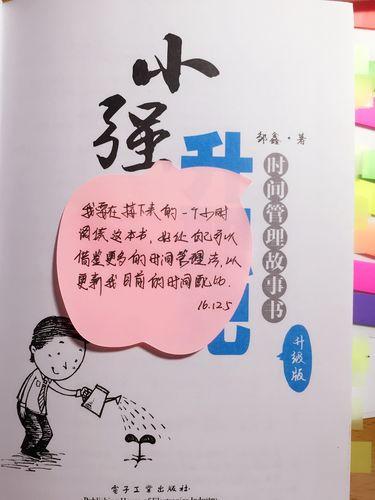 小
强
升
邹鑫·著
时间管理故事书
升级版
我要在接下来的一个小时
阅读这本书,好处自己可以
借鉴更多的时间管理法,以
更新我目前的时间配比.
16.12.5
记
电子工业出版社
Publishing House of Electronics Industry